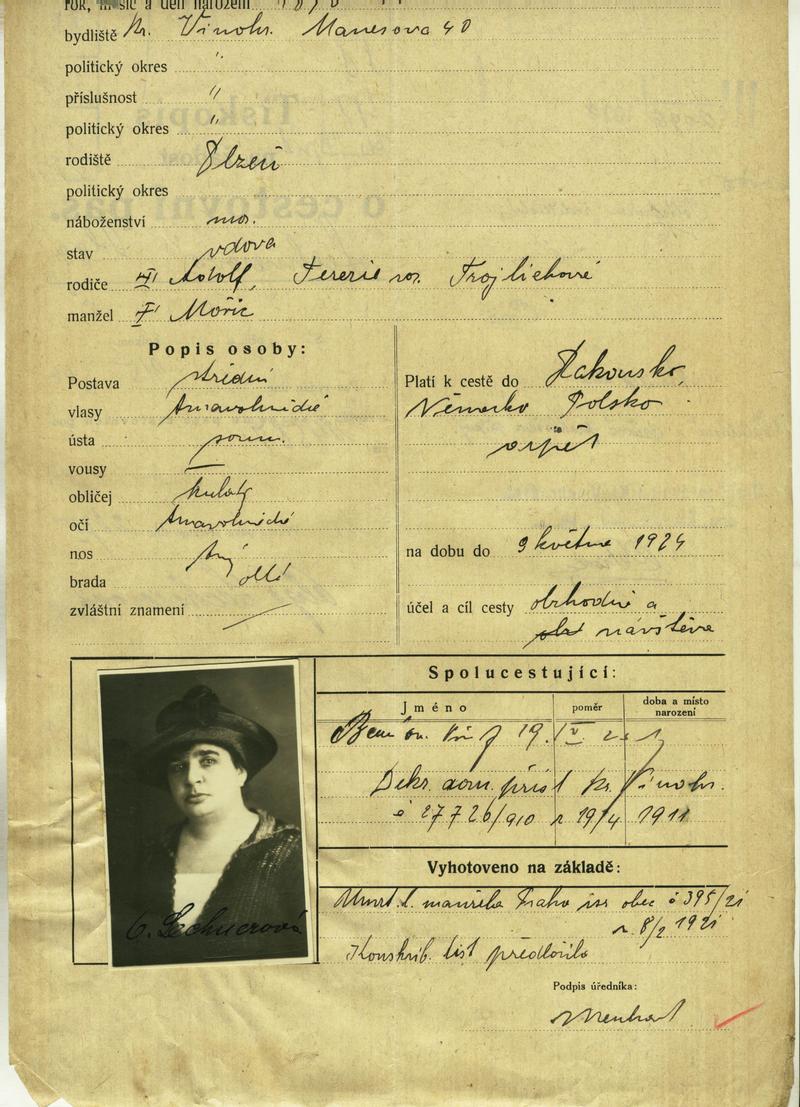 rok, měsíc a den narození
bydliště Kr. Vinohr. Manesova 40
politický okres "
příslušnost "
politický okres "
rodiště Plzeň
politický okres
náboženství mos.
stav vdova
rodiče Adolf, Terezie roz.
manžel Mořic
Popis osoby:
Postava střední
vlasy tmavohnědé
ústa soum.
vousy —
obličej kulatý
oči tmavohnědé
nos
brada
zvláštní znamení
Platí k cestě do Rakousko,
Německo Polsko
zpět
na dobu do 9 května 1924
účel a cíl cesty obchodní a
návštěva
C. Lechnerová
Spolucestující:
Jméno poměr doba a místo narození
19. IV
Dekr. dom. přísl Kr. Vinohr.
č 27726/910 z 19/4 1911
Vyhotoveno na základě:
Úmrt. l. manžela Praha isr obec č 395/21
z 8/2 1921
Konskrib. list předložila
Podpis úředníka: